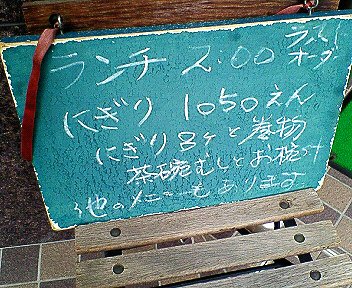 ランチ 2:00 ラスト
オーダー
にぎり 1050えん
にぎり8ヶと巻物
茶碗むしとお椀付
他のメニューもあります